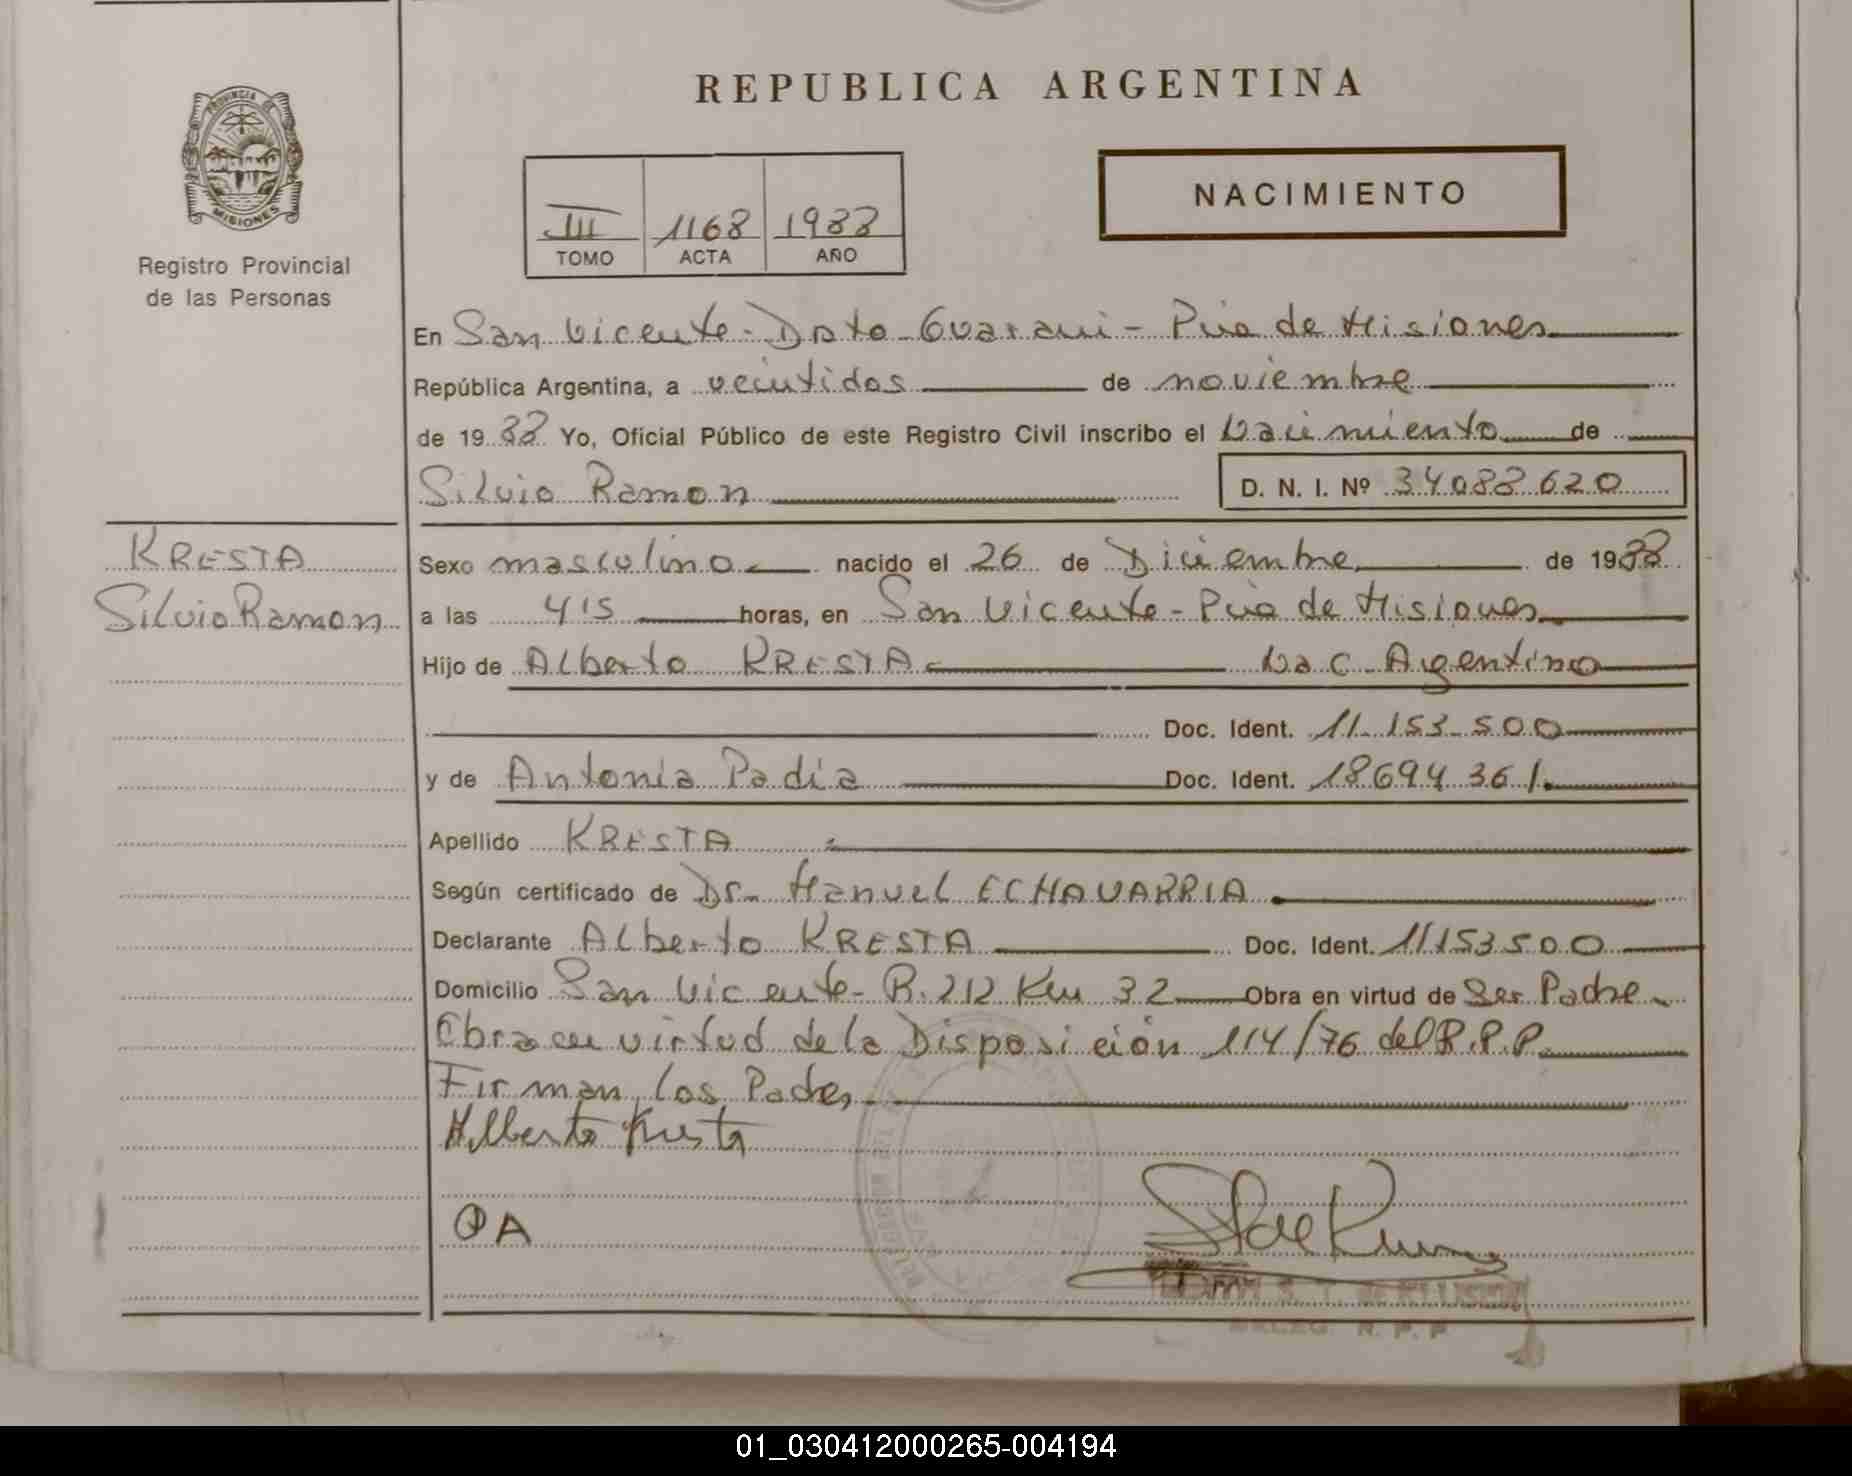 REPUBLICA ARGENTINA
PROVINCIA DE
MISIONES
Registro Provincial
de las Personas
NACIMIENTO
III 1168 1988
TOMO ACTA AÑO
En San Vicente - Dpto Guarani - Pcia de Misiones
República Argentina, a veintidos de noviembre
de 1988 Yo, Oficial Público de este Registro Civil inscribo el Nacimiento de
Silvio Ramon D. N. I. Nº 34088620
KRESTA
Silvio Ramon
Sexo masculino nacido el 26 de Diciembre de 1988
a las 415 horas, en San Vicente - Pcia de Misiones
Hijo de Alberto KRESTA Nac Argentino
Doc. Ident. 11.153.500
y de Antonia Padia Doc. Ident. 18694361
Apellido KRESTA
Según certificado de Dr. Manuel ECHAVARRIA
Declarante Alberto KRESTA Doc. Ident. 11153500
Domicilio San Vicente - R. 212 Km 32 Obra en virtud de Ser Padre
Obra en virtud de la Disposición 114/76 del R.P.P.
Firman los Padres
Alberto Kresta
OA
R. P. P
01_030412000265-004194